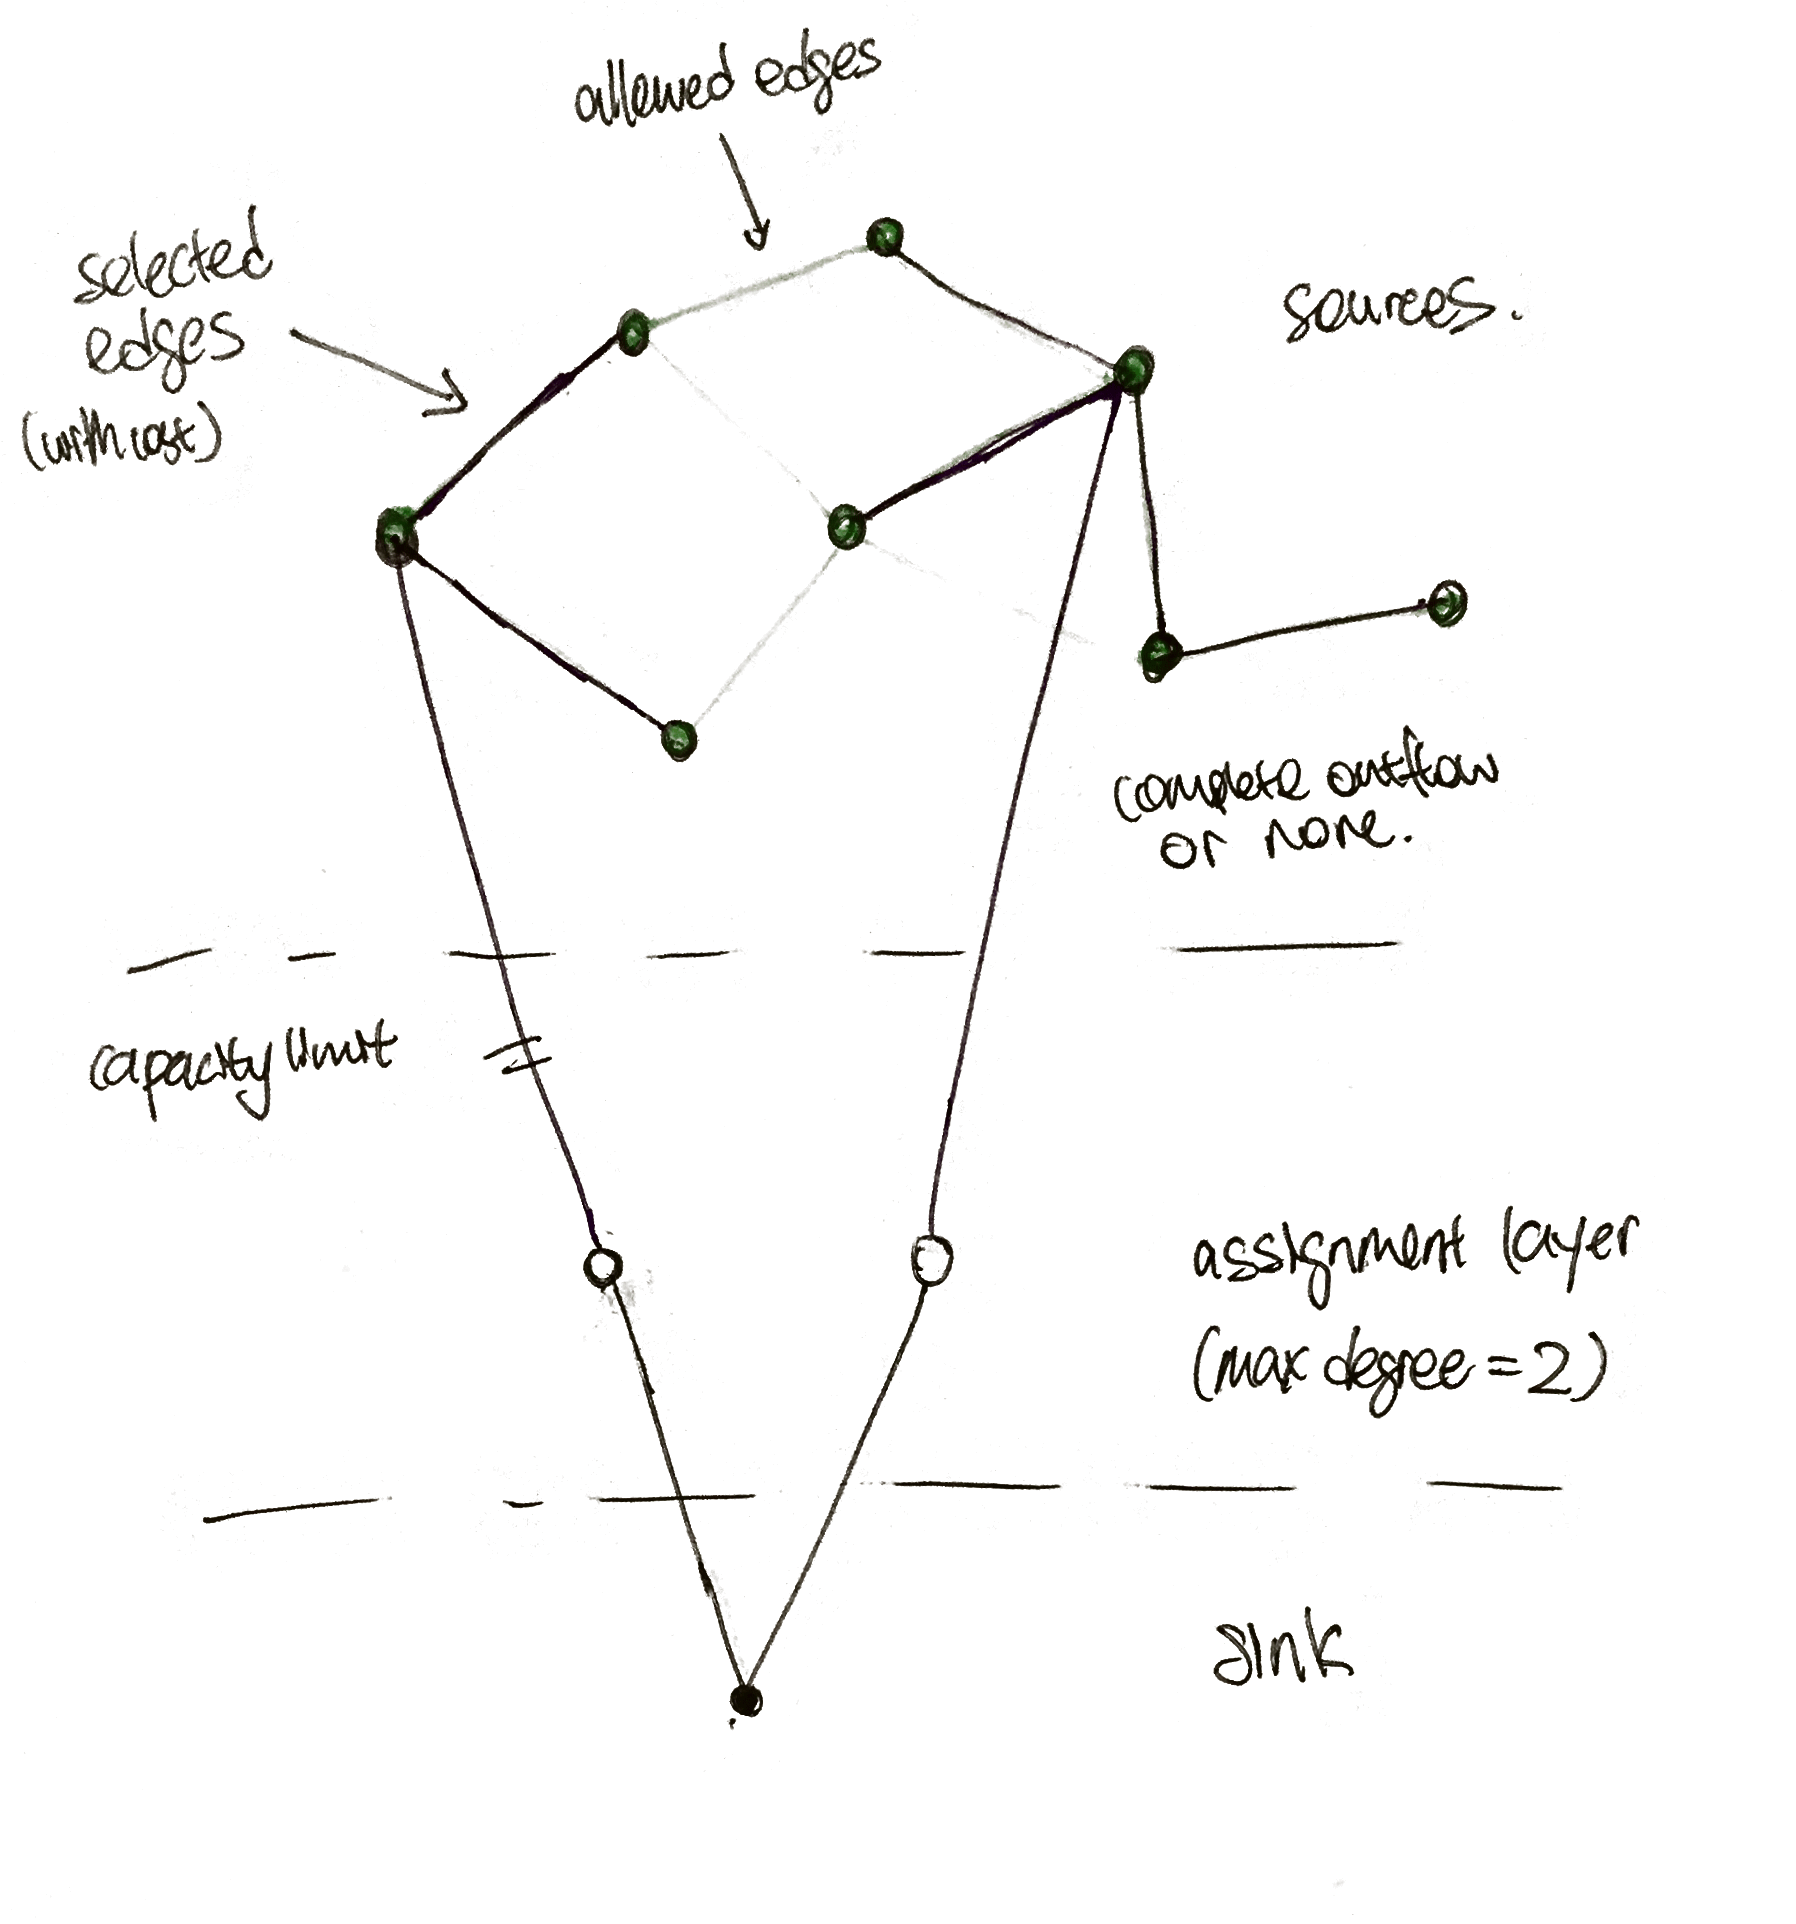 allowed edges
selected
edges
(with cost)
sources.
complete outflow
or none.
capacity limit
assignment layer
(max degree = 2)
sink